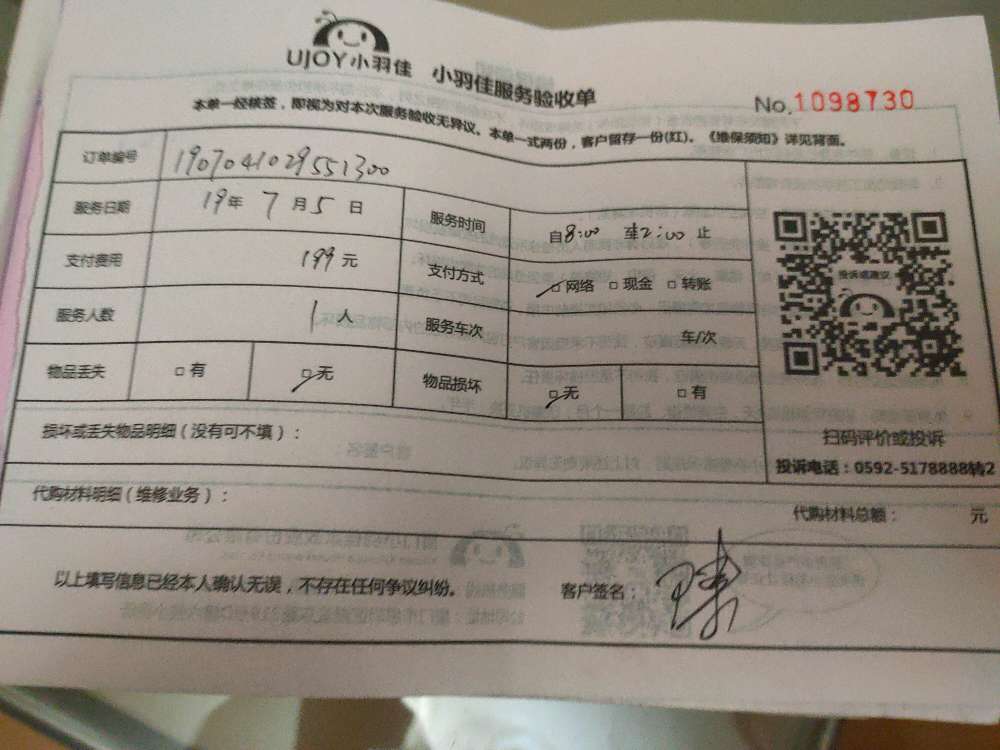 UJOY小羽佳 小羽佳服务验收单
No.1098730
本单一经核签，即视为对本次服务验收无异议。本单一式两份，客户留存一份(红)。《维保须知》详见背面。
订单编号 1907041029551300
服务日期 19年 7月5日 服务时间 自8:00 至12:00 止
支付费用 199元 支付方式 □网络 □现金 □转账
服务人数 1人 服务车次 车/次
物品丢失 □有 □无 物品损坏 □无 □有
投诉或建议
扫码评价或投诉
投诉电话：0592-5178888转2
损坏或丢失物品明细（没有可不填）：
代购材料明细（维修业务）：
代购材料总额： 元
以上填写信息已经本人确认无误，不存在任何争议纠纷。 客户签名：